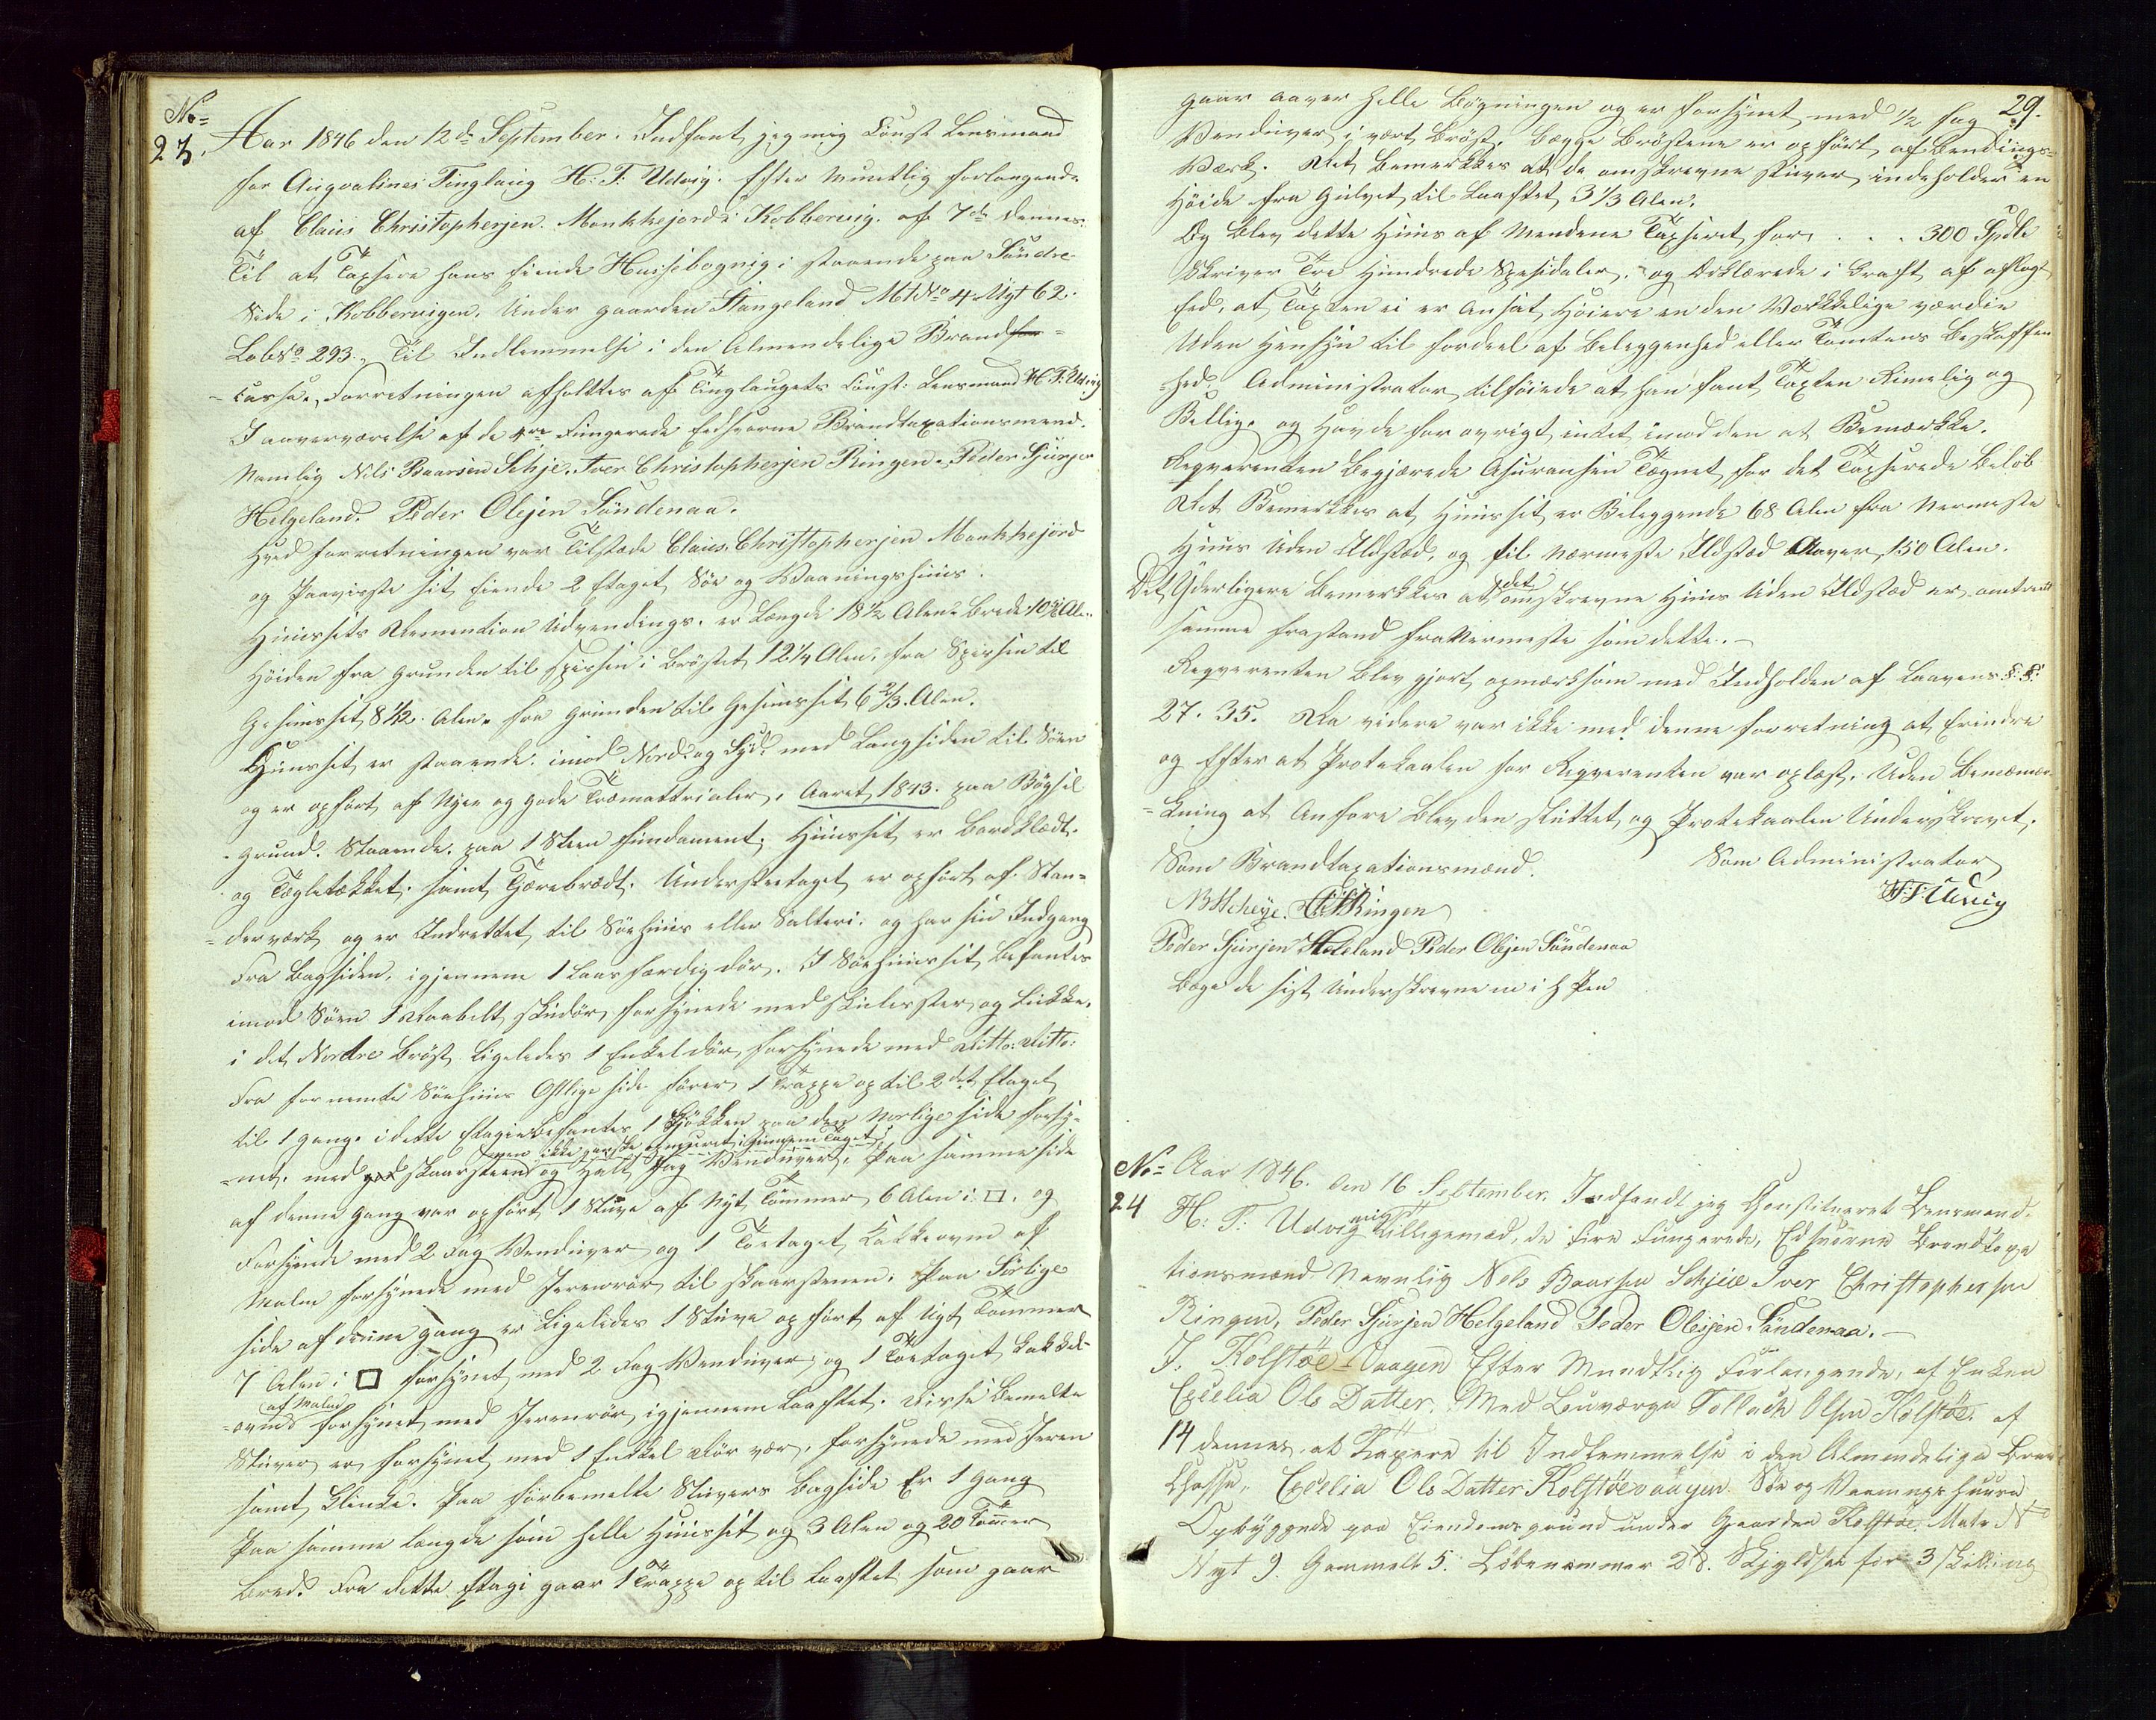 No=
23. Aar 1846 den 12de September. Indfant jeg mig Const: Lensmand
for Augvalsnes Tinglaug H: T: Udvig. Efter Muntlig forlangende
af Claus Christophersen Monkkejord i Kobbervig af 7de dennes.
Til at Taxsere hans Eiende Huusebogning i staaende paa Søndre
Side i Kobbervigen, Under gaarden Stangeland MtNo 4 Nyt 62.
LobNo 293., Til Indlemmelse i den Almendelige Brand=
=casse., Forretningen afholttes af Tinglaugets Const: Lensmand H: T: Udvig
I aaverværelse af de 4re Fungerede Eedsvorne Brandtaxationsmend.
Namlig Nils Baarsen Sehje. Iver Christophersen Ringen. Peder Sjursen
Helgeland. Peder Olsen Søndenaa.
Hved forretningen var Tilstæde Claus Christophersen Monkkejord
og Paaviste sit Eiende 2 Etaget Søe og Vaaningshuus.
Huussets Demention Udvendings. er Længde 18½ Alen. Brede 10¾ Alen.
Høiden fra Grunden til Spirsen i Brøstet 12¼ Alen, fra Spirsen til
Gesimsset 8½ Alen. fra Grunden til Gesimsset 6⅔ Alen.
Huusset er staaende imod Nord og Syd med Langsiden til Søen
og er opført af Nyee og gode Træmattrialer, Aaret 1843. paa Bøgsel
=grund. Staaende paa 1 Steen fundament, Huusset er Bordklædt.
og Tægletækket. samt Tjærebrædt. Understeetaget er opført af Stan=
=derværk og er Indrettet til Søehuus eller Salteri. og har sin Indgang
Fra Bagsiden, igjennem 1 Laasfærdig dør. I Søehuusset Befantes
imod Søen 1 Daabelt skudør forsynede med skudester og Lukke.
i det Nordre Brøst ligeledes 1 Enkel dør forsynede med Ditto: Ditto:
Fra fornemte Søehuus Østlige side fører 1 Trappe op til 2det Etaget
til 1 gang. i dette Etagie befantes 1 Kjøkken paa den Norlige side forsy=
men ikke ganske opmuret igjennem Taget
=net. med skaarsteen og Halt fag Venduver, Paa samme side
af denne gang var opført 1 Stuve af Nyt Tømmer 6 Alen i □. og
Forsynde med 2 Fag Venduver og 1 Toetaget Kakkeoven af
Malm forsynede med Jerenrør til skaarstenen. Paa Sørlige
side af denne gang er ligeledes 1 Stuve opført af Nyt Tømmer
7 Alen i □ forsynet med 2 Fag Venduver og 1 Toetaget kakkel=
af Malm
=ovne forsynet med Jerenrør igjennem Laaftet. Disse Bemelte
Stuver er forsynet med 1 Enkkel Dør vær, forsynede med Jeren
samt Klinke. Paa Førbemelte Stuvers bagside Er 1 Gang
Paa samme længde som Helle Huusset og 3 Alen og 20 Tommer
Bred. Fra dette Etagi gaar 1 Trappe op til Laaftet som gaar
29.
gaar aaver Helle Bøgningen og er forsynet med ½ fag
Venduver i vært Brøst, begge Brøstene er opført af Bendings=
Værk. Det Bemerkkes at de omskrevne Stuver indeholder en
Høide fra Gulvet til Laaftet 3⅓ Alen.
Og blev dette Huus af Mendene Taxseret for . . . 300 Spdlr
Skriver Tre Hundrede Spesidaler. og Erklærede i Kraft af aflagt
Eed, at Taxten ei er Ansat Høiere en den Verkkelige værdie
Uden Hensyn til fordeel af Beleggenhed eller Tomtens Beskaffen
=hed. Administrator tilføiede at han fant Taxten Rimelig og
Billig. og Havde for øvrigt intet imod den at Bemærkke.
Reqverenten Begjærede Asuransen Tegnet for det Taxserede Beløb
Det Bemerkkes at Huusset er Beleggende 68 Alen fra Nermeste
Huus Uden Ildsted, og til nærmeste Ildsted Aaver 150 Alen.
det
Det Yderligere Bemerkkes at omskrevne Huus Uden Ildsted er omtrent
samme frastand fra Nermeste som dette. —
Reqverenten Blev gjort opmærksom med Indholden af Laavens §: §:
27. 35. Da videre var ikke med denne Forretning at Erindre
og Efter at Protekaalen for Reqverenten var oplæst. Uden Bemær=
=kning at Anføre Blev den sluttet og Protekaalen Underskrevet.
Som Brandtaxationsmænd. Som Administrator
NBSchye. Ringen H: T: Udvig
Peder Sjursen Heleland Peder Olsen Søndenaa
Bege de sist Underskrevne m i h Pen
No= Aar 1846. den 16 September. Indfandt jeg Constitueret Lensmand
24 H: T: Udvig mig Tilligemæd, de fire Fungerede, Edsvorne Brandtaxa
tionsmænd Navnlig Nels Baarsen Schjee Iver Christophersen
Ringen, Peder Sjursen Helgeland Peder Olesen Søndenaa. —
I. Kolstøe-Vaagen Efter Mundtlig Forlangende, af Enken
Cecelia Ols Datter. Med Lauværge Tollach Olsen Kolstøe. af
14 dennes. at Taxere til Indlemmelse i den Almindelige Bran
Chasse., Cecelia Ols Datter Kolstøevaagen Søe og Vaanings Huuse
Opbyggede paa Eiendoms grund under Gaarden Kolstøe. Matr No
Nyt 9. Gammelt 5. Løbenummer 28. Skyldsat for 3 Skilling